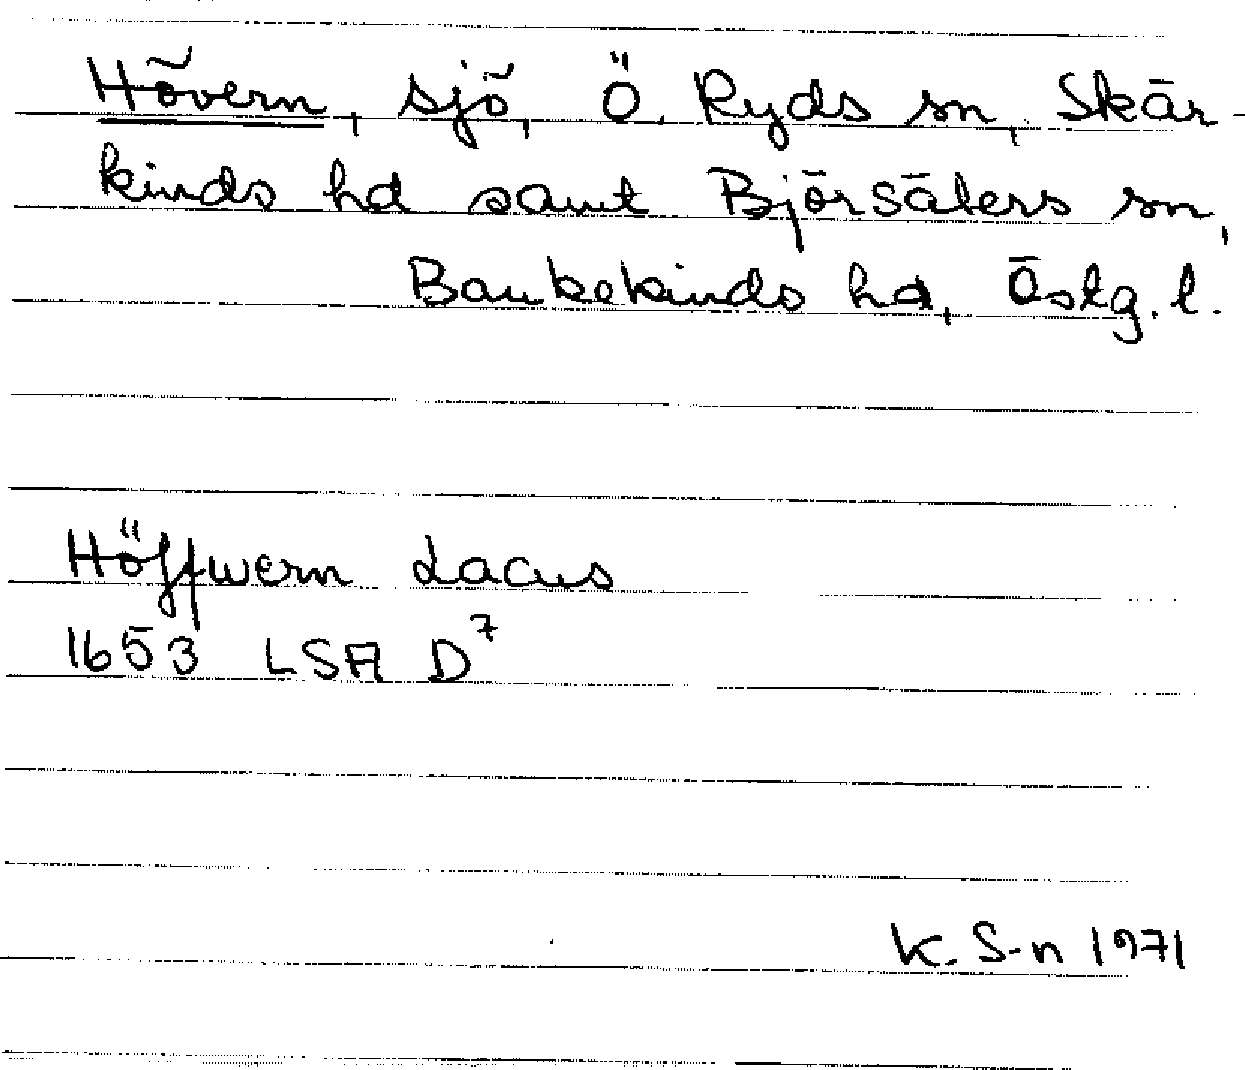 Hövern, sjö, Ö. Ryds sn, Skär-
kinds hd samt Björsäters sn,
Bankekinds hd, Östg. l.
Höffwern Lacus
1653 LSA D7
K. S-n 1971